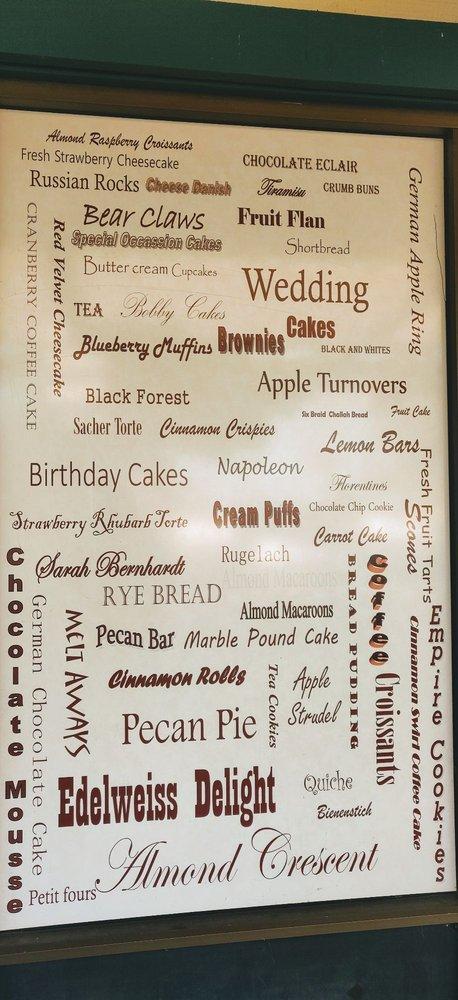 Almond Raspberry Croissants
Fresh Strawberry Cheesecake
CHOCOLATE ECLAIR
Russian Rocks
Cheese Danish
Tiramisu
CRUMB BUNS
German Apple Ring
Bear Claws
Fruit Flan
Special Occassion Cakes
Shortbread
CRANBERRY COFFEE CAKE
Red Velvet Cheesecake
Butter cream Cupcakes
Wedding
Cakes
TEA
Bobby Cakes
Blueberry Muffins
Brownies
BLACK AND WHITES
Apple Turnovers
Black Forest
Six Braid Challah Bread
Fruit Cake
Sacher Torte
Cinnamon Crispies
Lemon Bars
Birthday Cakes
Napoleon
Fresh Fruit Tarts
Florentines
Scones
Strawberry Rhubarb Torte
Cream Puffs
Chocolate Chip Cookie
Carrot Cake
Chocolate Mousse
Sarah Bernhardt
Rugelach
Almond Macaroons
Coffee
BREAD PUDDING
German Chocolate Cake
RYE BREAD
Almond Macaroons
Empire Cookies
MELT AWAYS
Pecan Bar
Marble Pound Cake
Cinnamon Swirl Coffee Cake
Cinnamon Rolls
Tea Cookies
Apple
Strudel
Croissants
Pecan Pie
Edelweiss Delight
Quiche
Bienenstich
Almond Crescent
Petit fours